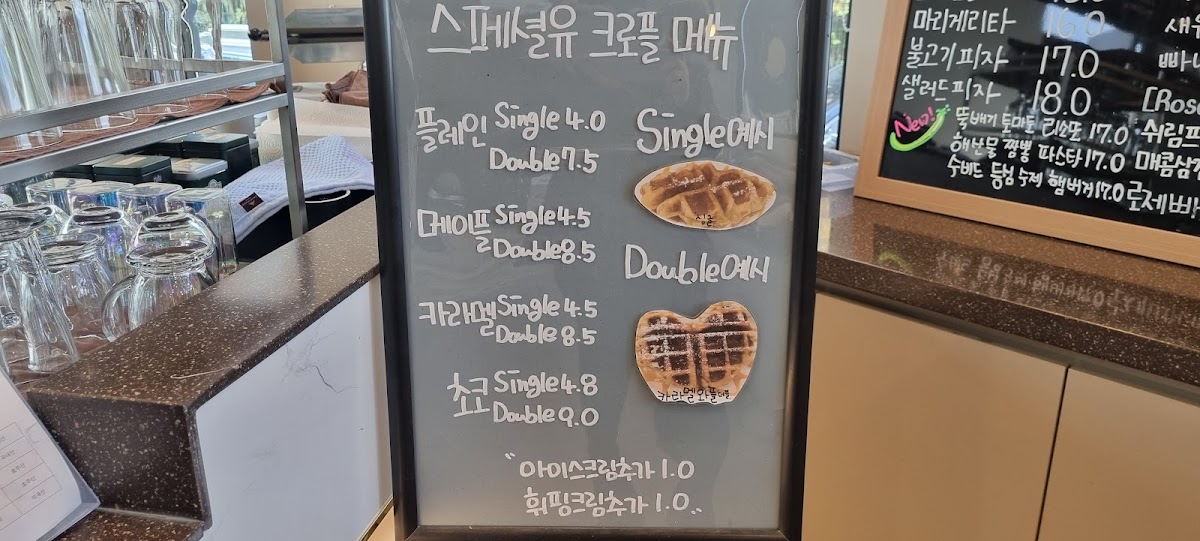 스페셜유 크로플 메뉴
플레인 Single 4.0
Double 7.5
메이플 Single 4.5
Double 8.5
카라멜 Single 4.5
Double 8.5
쵸코 Single 4.8
Double 9.0
"아이스크림추가 1.0
휘핑크림추가 1.0"
Single예시
싱글
Double예시
카라멜와플더블
마리게리타 16.0
불고기피자 17.0
샐러드피자 18.0
New!
뚝배기 토마토 리소또 17.0
해산물 짬뽕 파스타 17.0
수비드 등심 수제 햄버거 17.0
새우
빠네
[Rose
쉬림프
매콤삼겹
로제빠